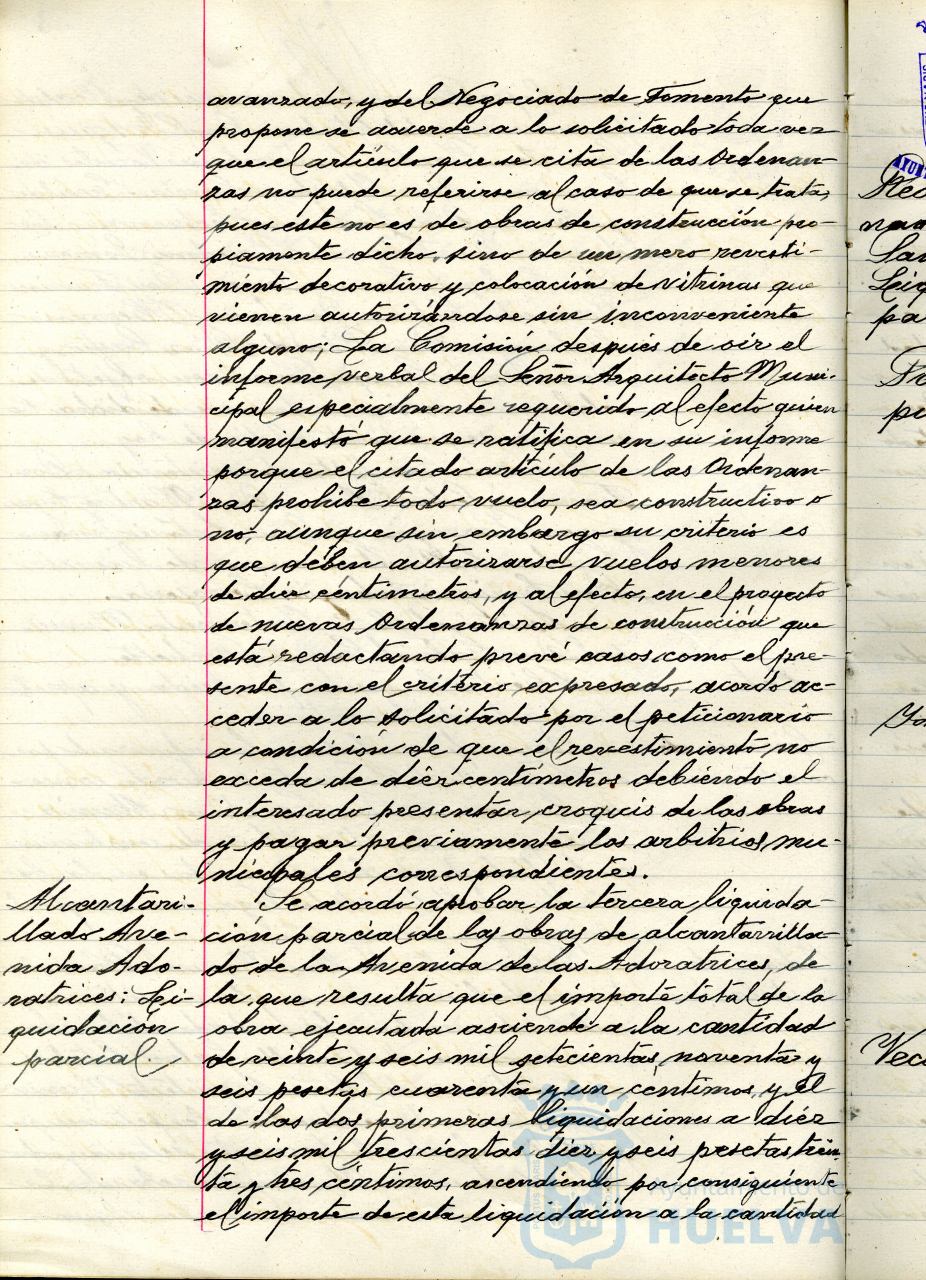 avanzado, y del Negociado de Fomento que
propone se acuerde a lo solicitado toda vez
que el artículo que se cita de las Ordenan-
zas no puede referirse al caso de que se trata,
pues este no es de obras de construcción pro-
piamente dicho, sino de un mero revesti-
miento decorativo y colocación de vitrinas que
vienen autorizándose sin inconveniente
alguno; La Comisión después de oir el
informe verbal del Señor Arquitecto Muni-
cipal especialmente requerido al efecto quien
manifestó que se ratifica en su informe
porque el citado artículo de las Ordenan-
zas prohibe todo vuelo, sea constructivo o
no, aunque sin embargo su criterio es
que deben autorizarse vuelos menores
de diez céntimetros, y al efecto, en el proyecto
de nuevas Ordenanzas de construcción que
está redactando prevé casos como el pre-
sente con el criterio expresado, acordo ac-
ceder a lo solicitado por el peticionario
a condición de que el revestimiento no
exceda de diez centímetros debiendo el
interesado presentar croquis de las obras
y pagar previamente los arbitrios mu-
nicipales correspondientes.
Alcantari-
llado Ave-
nida Ado-
ratrices: Li-
quidación
parcial.
Se acordó aprobar la tercera liquida-
ción parcial de las obras de alcantarilla-
do de la Avenida de las Adoratrices, de
la que resulta que el importe total de la
obra ejecutada asciende a la cantidad
de veinte y seis mil setecientas noventa y
seis pesetas cuarenta y un céntimos, y el
de las dos primeras liquidaciones a diéz
y seis mil trescientas diez y seis pesetas trein-
ta y tres céntimos, ascendiendo por consiguiente
el importe de esta liquidación a la cantidad
Ayuntamiento de
HUELVA